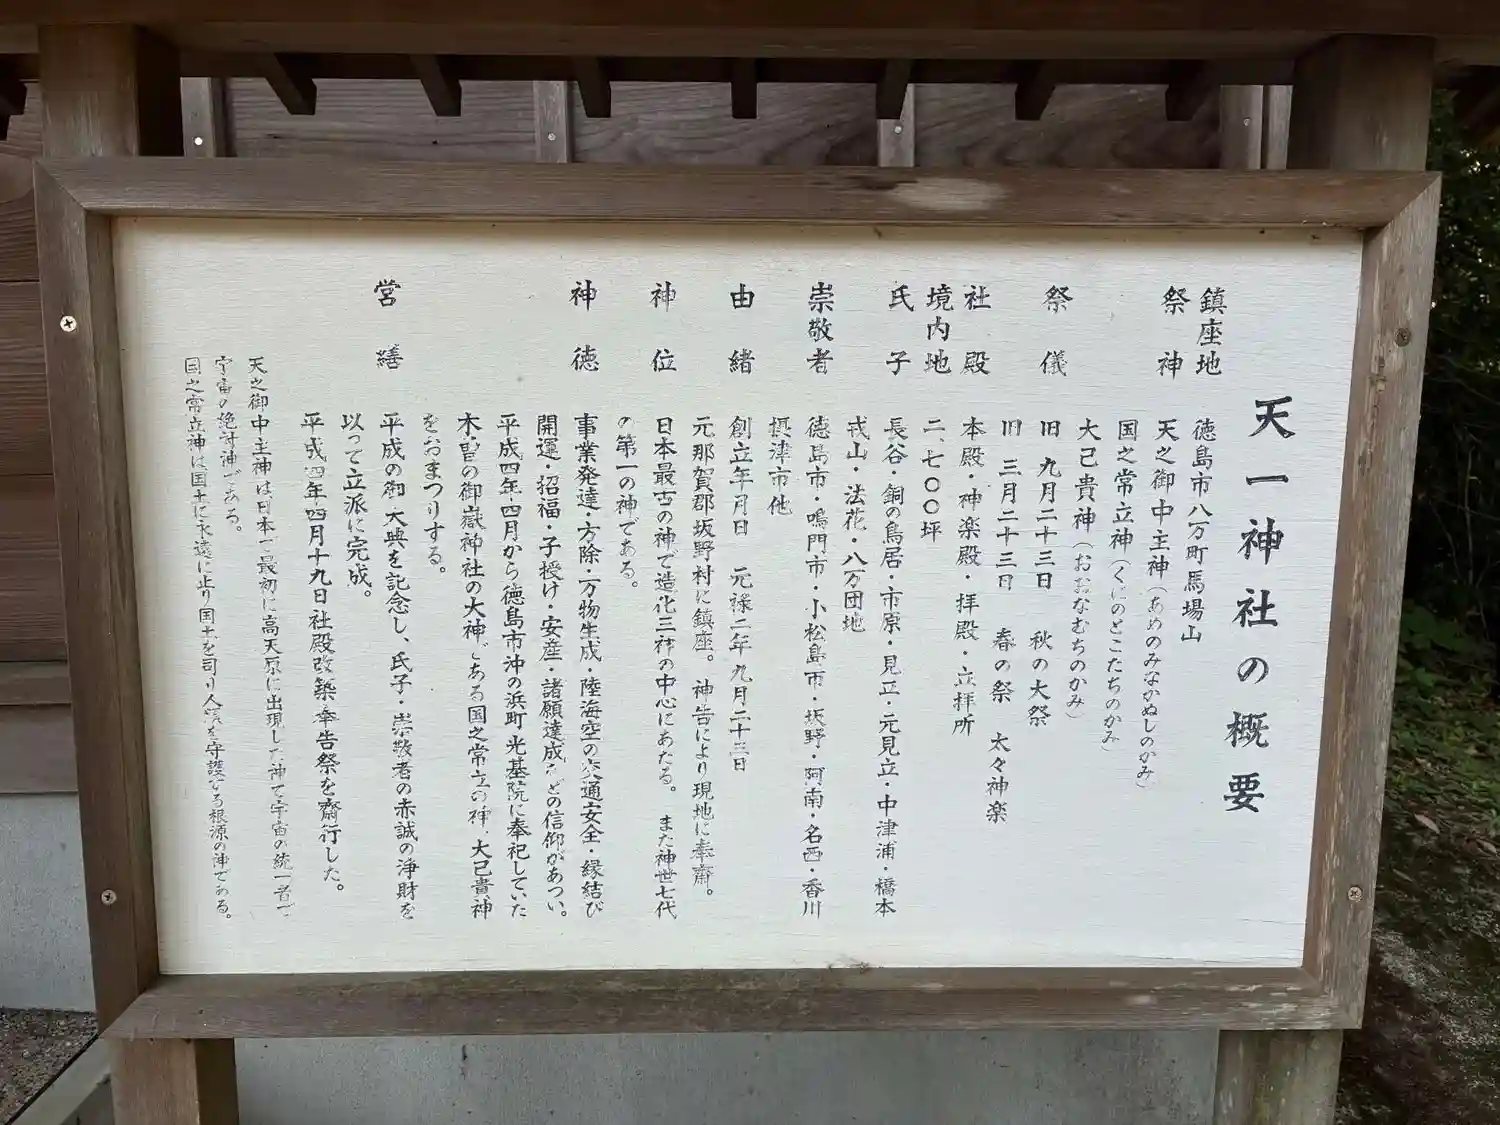 天一神社の概要
鎮座地　徳島市八万町馬場山
祭神　天之御中主神（あめのみなかぬしのかみ）
国之常立神（くにのとこたちのかみ）
大己貴神（おおなむちのかみ）
祭儀　旧　九月二十三日　秋の大祭
旧　三月二十三日　春の祭　太々神楽
社殿　本殿・神楽殿・拝殿・立拝所
境内地　二、七〇〇坪
氏子　長谷・銅の鳥居・市原・見正・元見立・中津浦・橋本
戎山・法花・八万団地
崇敬者　徳島市・鳴門市・小松島市・坂野・阿南・名西・香川
摂津市他
由緒　創立年月日　元禄二年九月二十三日
元那賀郡坂野村に鎮座。神告により現地に奉齋。
神位　日本最古の神で造化三神の中心にあたる。また神世七代
の第一の神である。
神徳　事業発達・方除・万物生成・陸海空の交通安全・縁結び
開運・招福・子授け・安産・諸願達成などの信仰があつい。
平成四年四月から徳島市沖の浜町光基院に奉祀していた
木曽の御嶽神社の大神である国之常立の神、大己貴神
をおまつりする。
営繕　平成の御大典を記念し、氏子・崇敬者の赤誠の浄財を
以って立派に完成。
平成四年四月十九日社殿改築奉告祭を齋行した。
天之御中主神は日本で最初に高天原に出現した神で宇宙の統一者で
宇宙の絶対神である。
国之常立神は国土に永遠に止り国土を司り人類を守護する根源の神である。